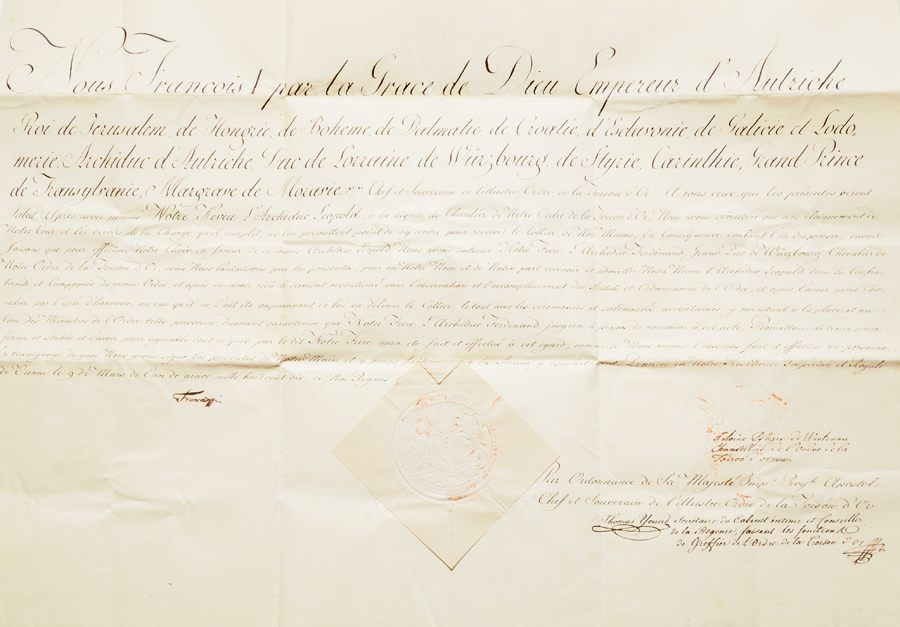 Nous François I par la Grace de Dieu Empereur d'Autriche
Roi de Jerusalem, de Hongrie, de Boheme de Dalmatie, de Croatie, d'Esclavonie, de Galicie et Lodo,
merie, Archiduc d'Autriche Duc de Lorraine de Würzbourg, de Styrie, Carinthie, Grand Prince
de Transylvanie, Margrave de Moravie Chef et Souverain de l'illustre Ordre de la Toison d'Or. A tous ceux que les présentes
Salut Après avoir nommé Notre Neveu L'Archiduc Leopold, à la dignité de Chevalier de Notre Ordre de la Toison d'Or, Nous avons consideré que son eloignement de
Notre Cour et les devoirs de la Charge qu'il remplit, ne lui permettent point de s'y rendre pour recevoir le Collier de Nos Mains, En Consequence voulant l'en dispenser, savoir
faisons que pour Notre Choix en faveur de ce meme Archiduc Leopold Nous avons autorisé Notre Frere L'Archiduc Ferdinand Grand Duc de Würzbourg Chevalier de
Notre Ordre de la Toison d'Or, comme Nous l'autorisons par les presentes, pour en Notre Nom et de Notre part recevoir et admettre Notre Neveu l'Archiduc Leopold dans la Confra-
ternité et Compagnie du meme Ordre, et après en avoir reçu le serment accoutumé pour l'observation et l'accomplissement des Statuts et Ordonnances de l'Ordre, et après l'avoir armé Che-
valier par l'épée d'honneur, au cas qu'il ne l'ait été auparavant de lui en délivrer le Collier, le tout avec les cérémonies et solemnités accoutumées, y assistant à la place et au
lieu des Ministres de l'Ordre telle personne dument caractérisée que Notre Frere l'Archiduc Ferdinand jugera à propos de nommer à cet acte; Promettons de tenir pour
ferme et stable et d'avoir pour agreable tout ce qui par le dit Notre Frere aura été fait et effectué à cet egard, comme si Nous meme l'eussions fait et effectué en personne,
en temoignage de quoi Nous avons signé les presentes de Notre Main et y avons fait Donnée en Notre Residence Imperiale et Royale
de Vienne le 9 de Mars de l'an de grace mille huit cent dix, de Nos Regnes
François
Antoine de
Chancellier de l'Ordre de la
Toison d'or
Par Ordonnance de Sa Majesté Imp. Roy. Apostol.
Chef et Souverain de l'illustre Ordre de la Toison d'Or
Thomas Secretaire du Cabinet intime et Conseiller
de la Regence, faisant les fonctions
de Greffier de l'Ordre de la Toison d'or